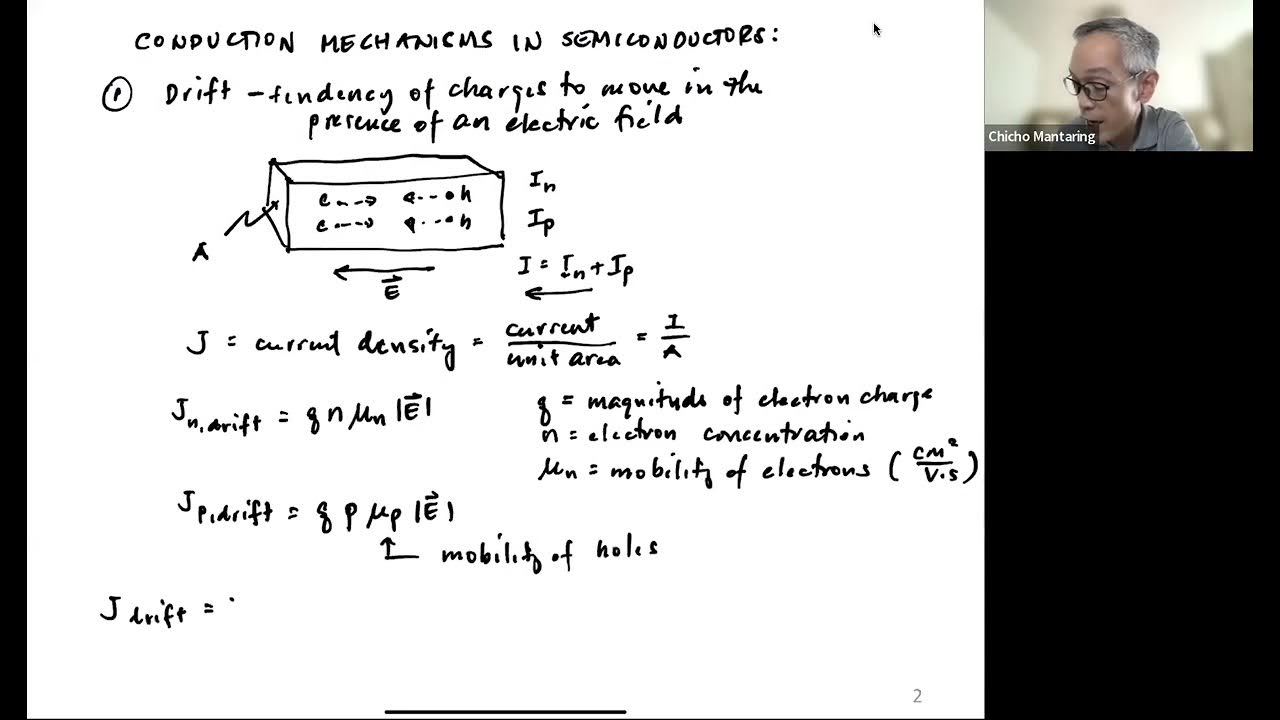 CONDUCTION MECHANISMS IN SEMICONDUCTORS:
① Drift - tendency of charges to move in the
presence of an electric field
e h
e h
A
E⃗
I_n
I_p
I = I_n + I_p
J = current density = current / unit area = I / A
J_n,drift = q n μ_n |E⃗|
q = magnitude of electron charge
n = electron concentration
μ_n = mobility of electrons (cm² / V·s)
J_p,drift = q p μ_p |E⃗|
mobility of holes
J_drift =
2
Chicho Mantaring